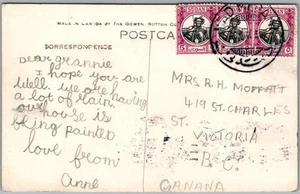 MADE IN CANADA BY THE GOWEN, SUTTON CO
POSTCA
CORRESPONDENCE
SUDAN SUDAN SUDAN
5 5
Dear grannie
I hope you are
well. We are having
a lot of rain
our house is
being painted
love from
Anne
MRS. R. H. MOFFATT
419 ST. CHARLES
ST.
VICTORIA
B.C.
CANANA